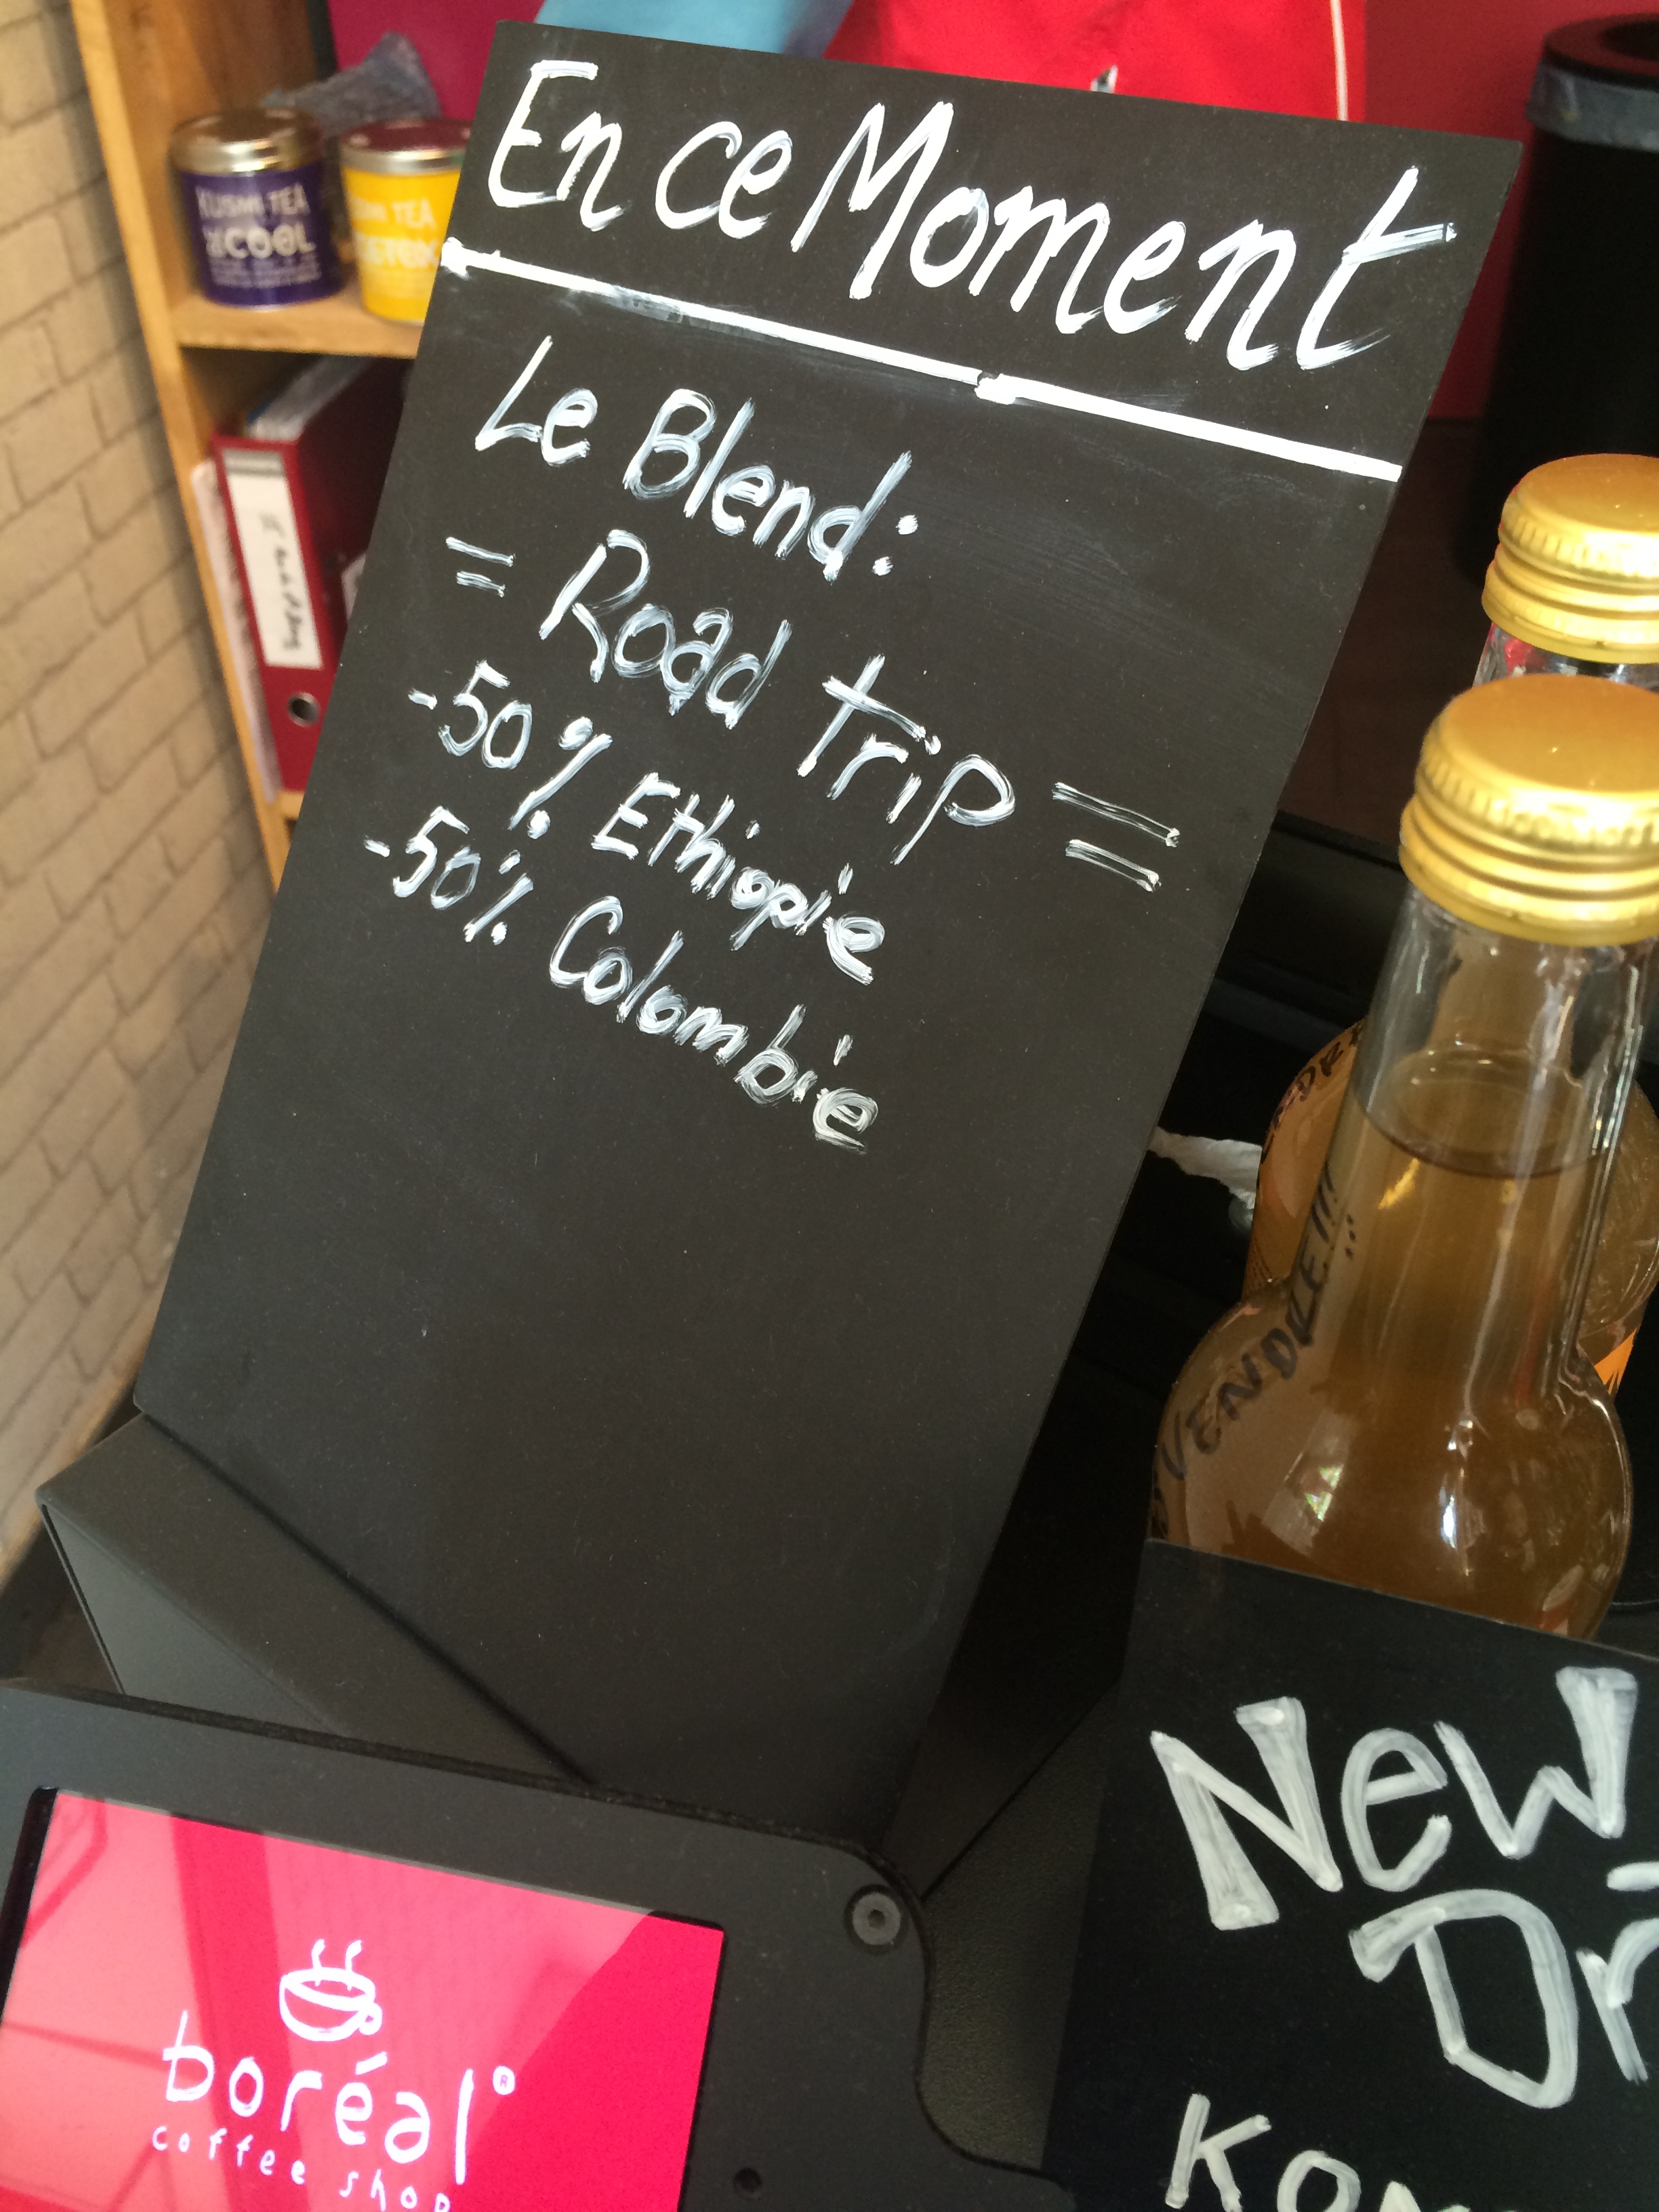 En ce Moment
Le Blend:
= Road trip =
-50% Ethiopie
-50% Colombie
KUSMI TEA
COOL
TEA
VENDLE!!!
New
Dr
KOM
boréal®
coffee shop